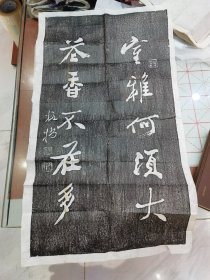 室雅何须大
花香不在多
板桥